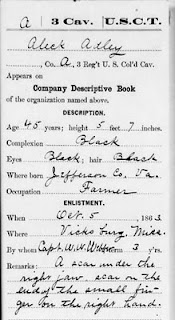 A | 3 Cav. | U.S.C.T.
Aleck Atley
, Co. A, 3 Reg't U. S. Col'd Cav.
Appears on
Company Descriptive Book
of the organization named above.
DESCRIPTION.
Age 45 years; height 5 feet 7 inches.
Complexion Black
Eyes Black; hair Black
Where born Jefferson Co. Va.
Occupation Farmer
ENLISTMENT.
When Oct. 5, 1863
Where Vicksburg, Miss.
By whom Capt. W. H. ; term 3 y'rs.
Remarks: A scar under the
right jaw scar on the
end of the small fin-
ger on the right hand.